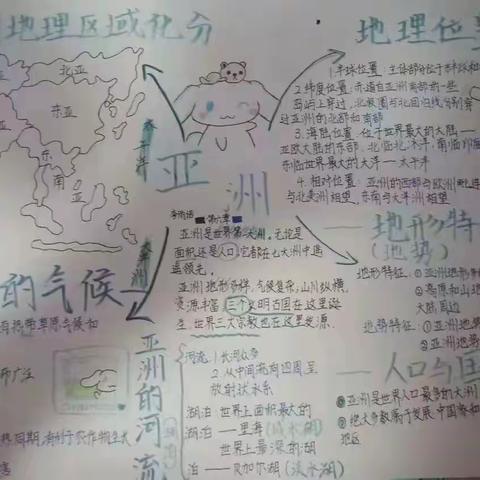 地理区域化分
北亚
东亚
南亚
东南亚
太平洋
亚洲
地理位
1.半球位置：主体部分位于东半球和
2.纬度位置：赤道自亚洲南部的一些
岛屿上穿过，北极圈与北回归线分别穿
过亚洲的北部和南部
3.海陆位置：位于世界最大的大陆——
亚欧大陆的东部，北临北冰洋，南临印度
东临世界最大的大洋——太平洋
4.相对位置：亚洲的西部与欧洲
与北美洲相望，东南与大洋洲相望
第六章
亚洲是世界第一大洲，无论是
面积还是人口，它都在七大洲中遥
遥领先。
亚洲地形多样，气候复杂，山川纵横，
资源丰富，三个文明古国在这里诞
生，世界三大宗教也在这里发源。
地形特
（地势）
地形特征：①亚洲地形
②高原和山地
大陆周边
地势特征：①亚洲地势
②亚洲地
的气候
有热带草原气候和
广泛
热同期，有利于农作物生长
亚洲的河流
河流：1.长河众多
2.从中间流向四周呈
放射状水系
湖泊 世界上面积最大的
湖泊——里海（咸水湖）
世界上最深的湖
泊——贝加尔湖（淡水湖）
人口与国
①亚洲是世界人口最多的大洲
②绝大多数属于发展中国家和
地区